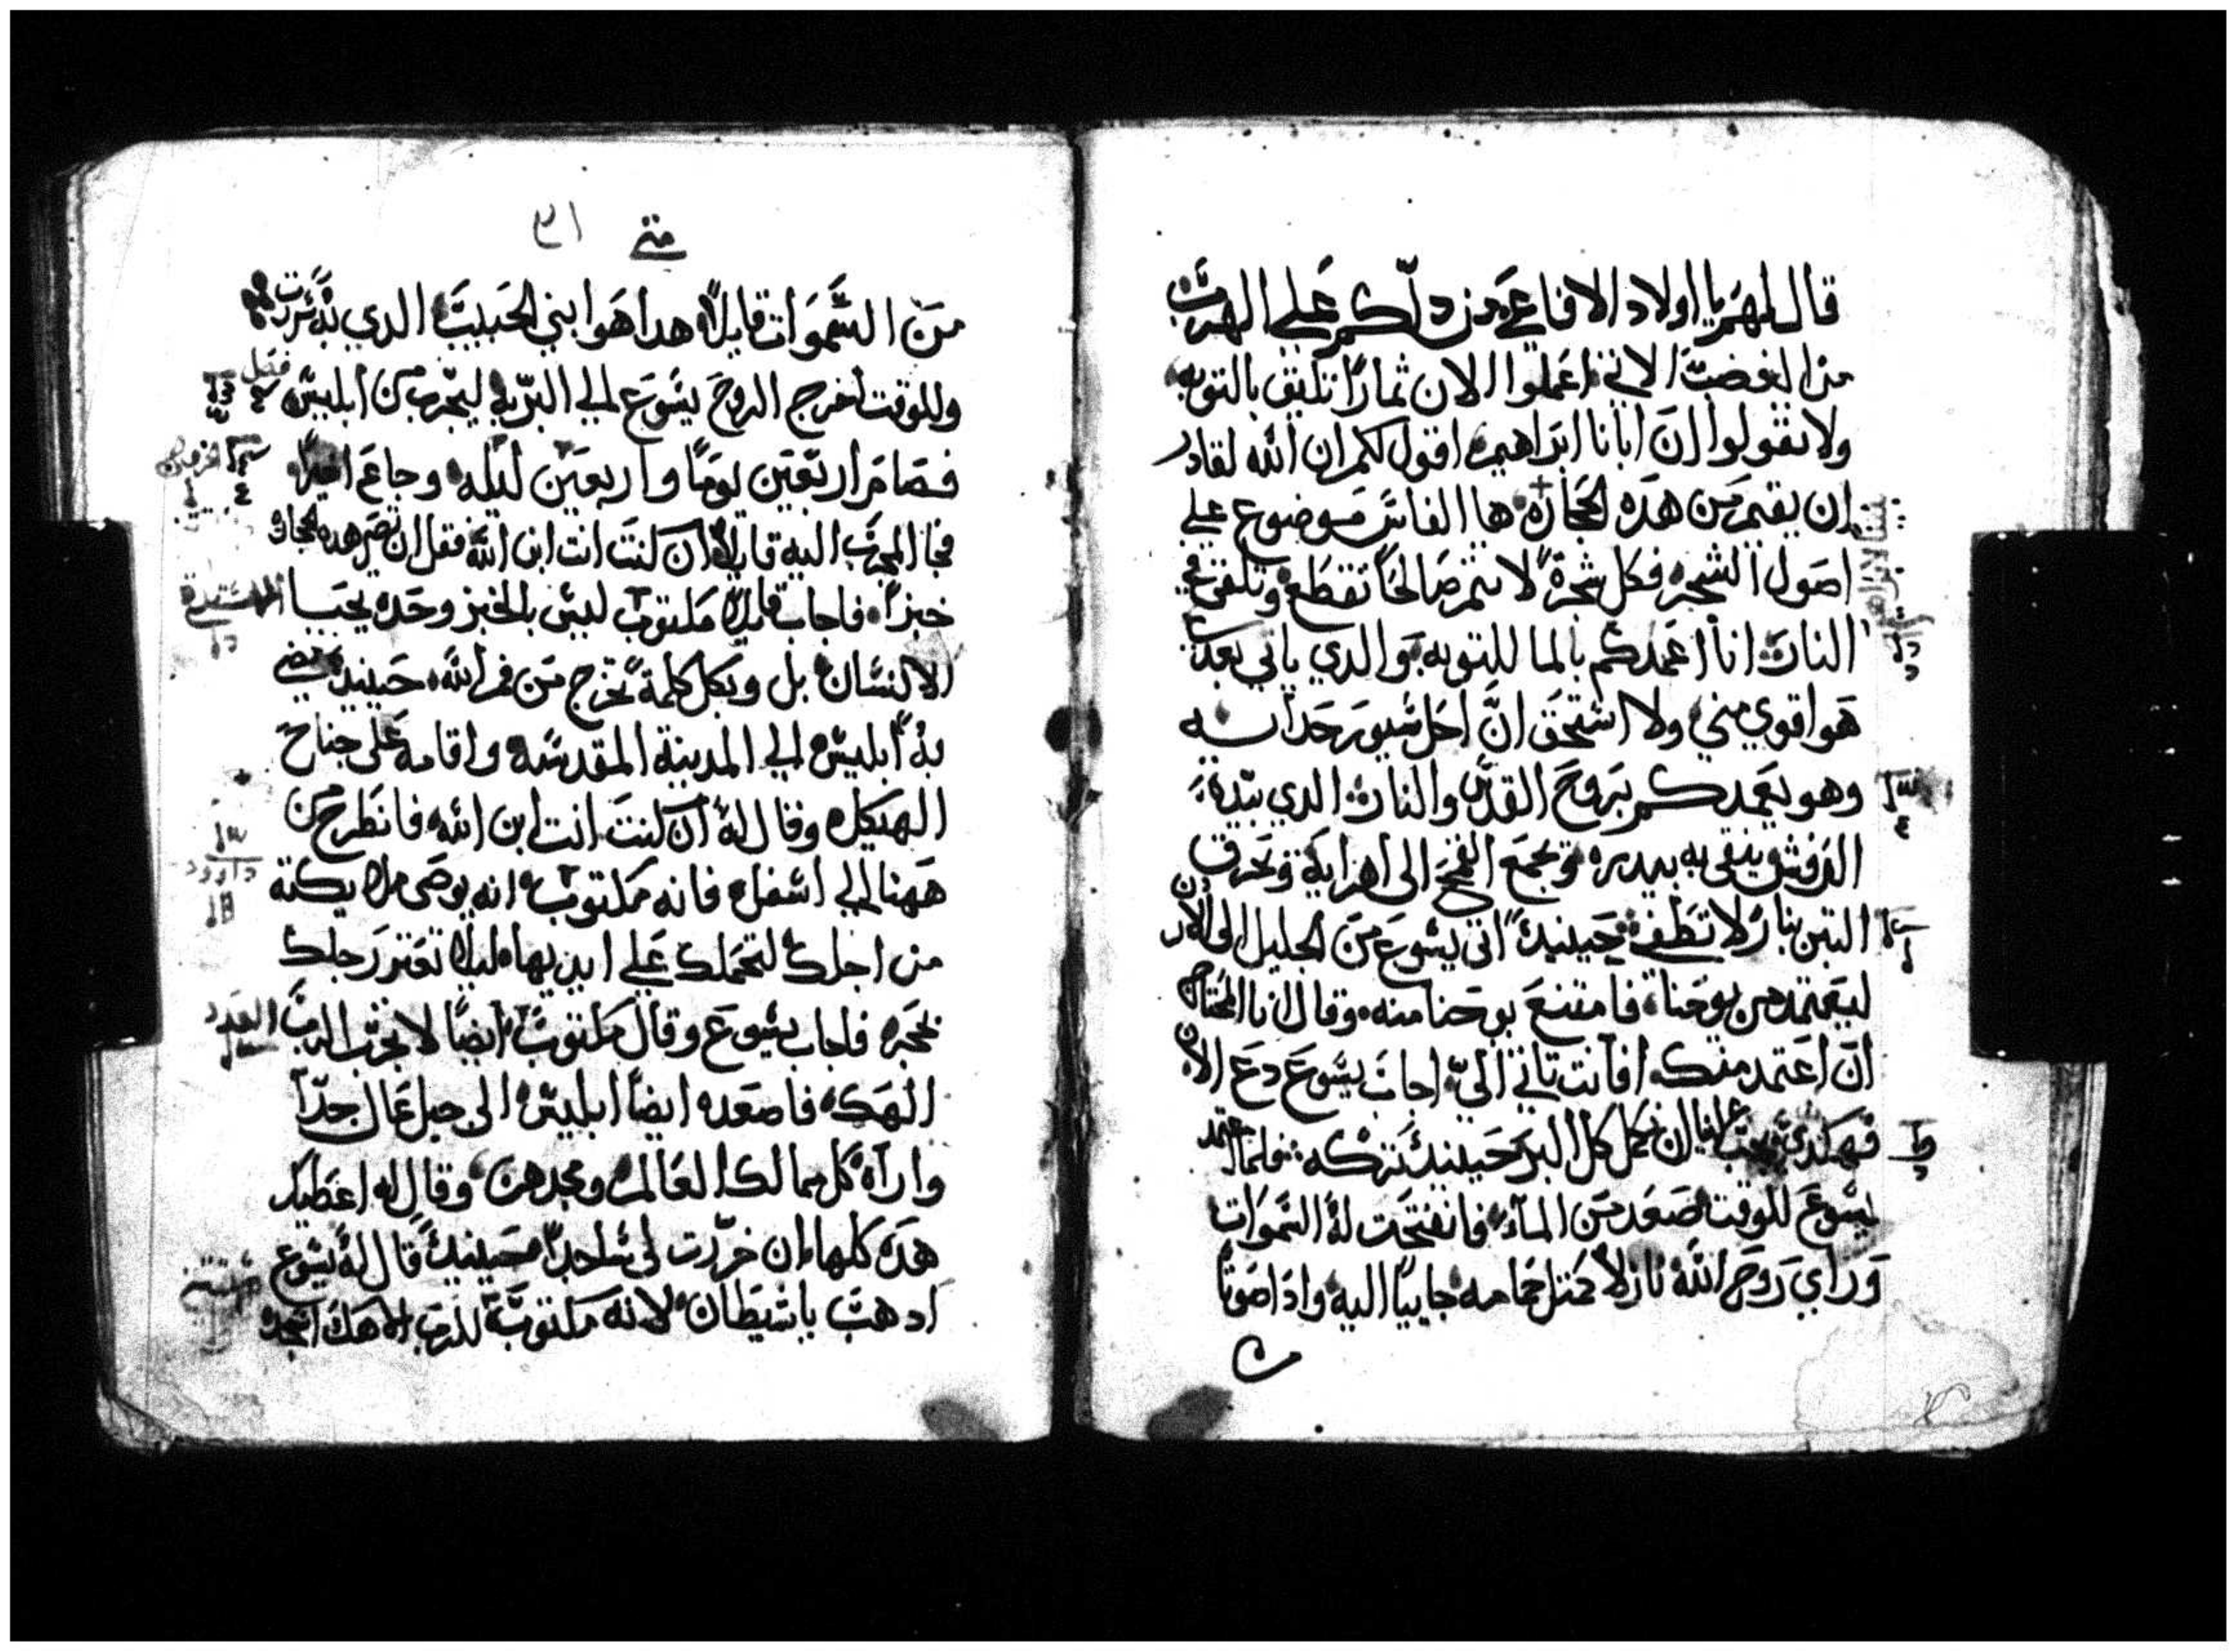 قال لهم يا اولاد الافاعي من دلكم علي الهرب
من الغضب الاتي اعملوا الان ثمارا تليق بالتوبه
ولا تقولوا ان ابانا ابراهيم اقول لكم ان الله لقادر
ان يقيم من هده الحجاره ها الفاس موضوع علي
اصول الشجر فكل شجرة لا تثمر صالحا تقطع وتلقى في
النار انا اعمدكم بالما للتوبه والدي ياتي بعدي
هو اقوي مني ولا استحق ان احل سيور حدايه
وهو يعمدكم بروح القدس والنار الدي بيده
الرفش ينقى به بيدره ويجمع القمح الى اهرايه ويحرق
التبن بنار لا تطفى حينيد اتى يشوع من الجليل الى الاردن
ليعتمد من يوحنا فامتنع يوحنا منه وقال انا المحتاج
ان اعتمد منك افانت تاتي الي اجاب يسوع دع الان
فهكدي يجب لنا ان نكمل كل البر حينيد تركه فلما اعتمد
يسوع للوقت صعد من الماء فانفتحت له السموات
وراي روح الله نازلا كمثل حمامه جاييا اليه وادا صوتا
متى ٣١
من السموات قايلا هدا هو ابني الحبيب الدي به سررت
وللوقت اخرج الروح يسوع الي البريه ليجرب من ابليس
فصام اربعين يوما واربعين ليله وجاع اخيرا
فجا المجرب اليه قايلا ان كنت انت ابن الله فقل ان تصير هده الحجاره
خبزا فاجاب قايلا مكتوب ليس بالخبز وحده يحيا
الانسان بل وبكل كلمة تخرج من فم الله حينيد مضي
به ابليس الي المدينة المقدسه واقامه على جناح
الهيكل وقال له ان كنت انت ابن الله فانطرح من
ههنا الي اسفل فانه مكتوب انه يوصى ملايكته
من اجلك لتحملك علي ايديها ليلا تعتر رجلك
بحجر فاجاب يسوع وقال مكتوب ايضا لا تجرب الرب
الهك فاصعده ايضا ابليس الى جبل عال جدا
واراه كل ممالك العالم ومجدهن وقال له اعطيك
هده كلها ان خررت لى ساجدا حينيد قال له يسوع
ادهب يا شيطان لانه مكتوب للرب الاهك اسجد